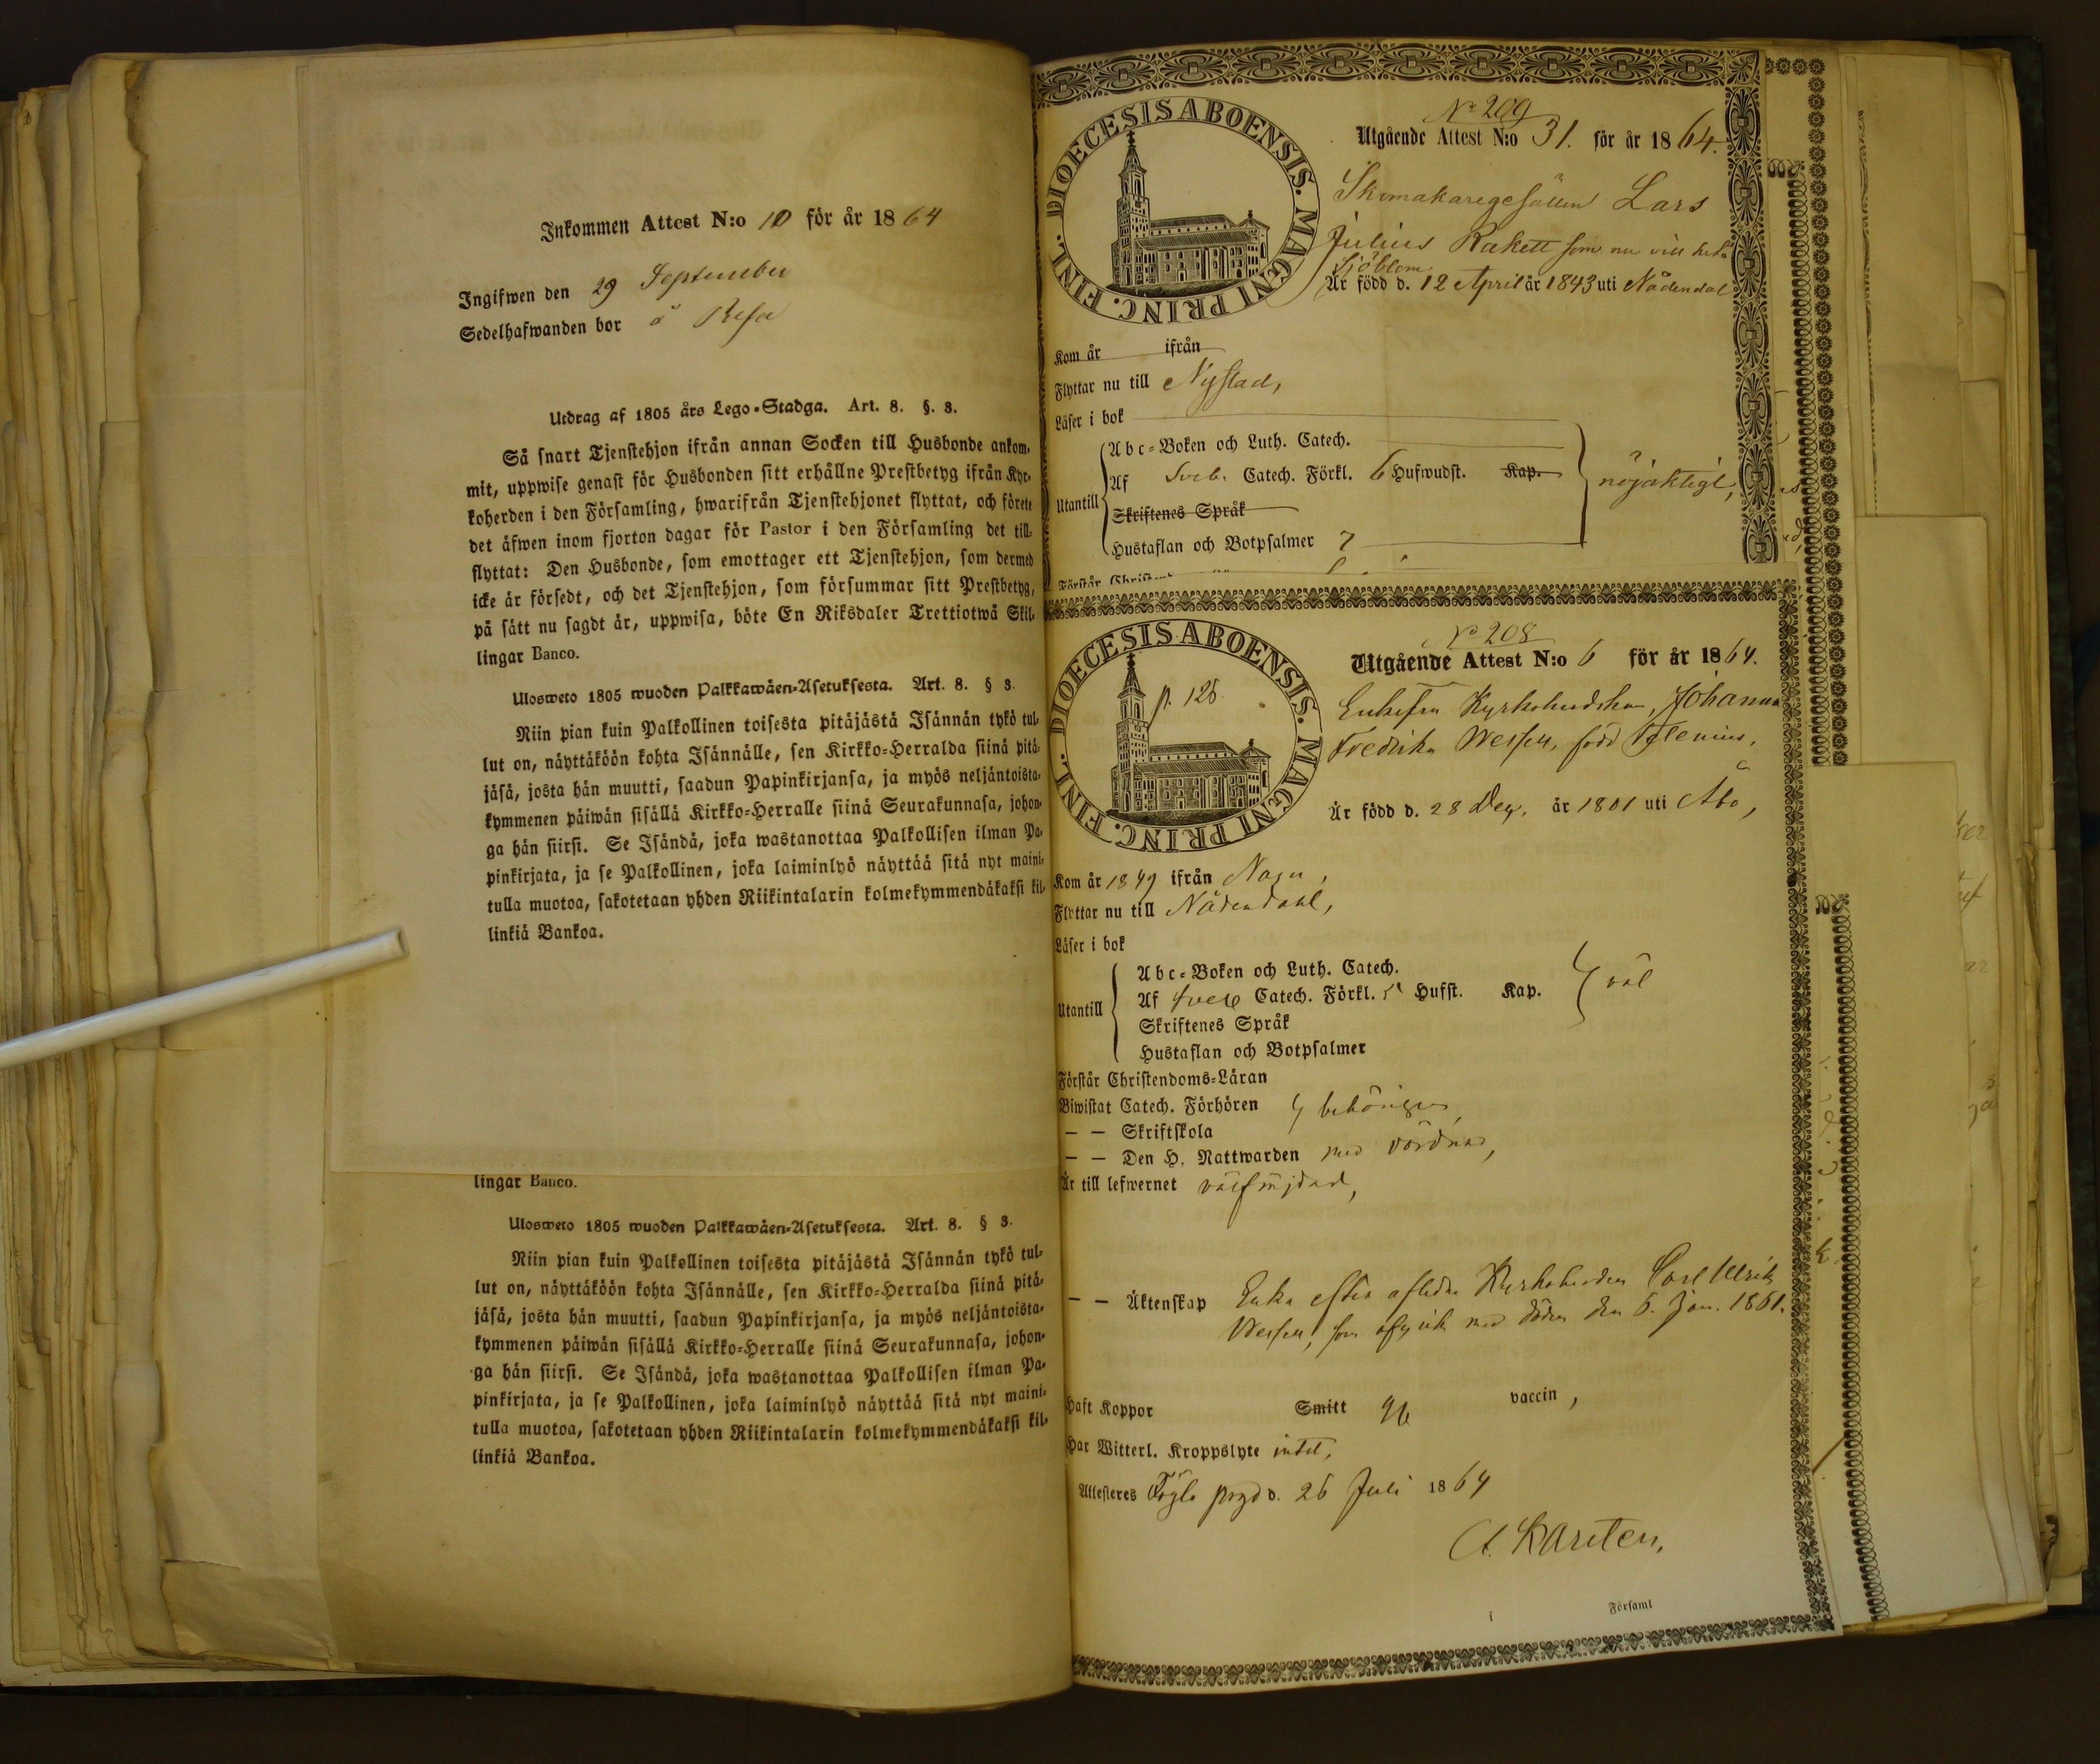 Inkommen Attest N:o 10 för år 1864
Ingifwen den 29 September
Sedelhafwanden bor å Resa
Utdrag af 1805 års Lego-Stadga. Art. 8. §. 3.
Så snart Tjenstehjon ifrån annan Socken till Husbonde ankom-
mit, uppwise genast för Husbonden sitt erhållne Prestbetyg ifrån Kyr-
koherden i den Församling, hwarifrån Tjenstehjonet flyttat, och förete
det äfwen inom fjorton dagar för Pastor i den Församling det till-
flyttat: Den Husbonde, som emottager ett Tjenstehjon, som dermed
icke är försedt, och det Tjenstehjon, som försummar sitt Prestbetyg,
på sätt nu sagdt är, uppwisa, böte En Riksdaler Trettiotwå Skil-
lingar Banco.
Ulosweto 1805 wuoden Palkkawäen-Asetuksesta. Art. 8. § 3.
Niin pian kuin Palkollinen toisesta pitäjästä Isännän tykö tul-
lut on, näyttäköön kohta Isännälle, sen Kirkko-Herralda siinä pitä-
jäsä, josta hän muutti, saadun Papinkirjansa, ja myös neljäntoista-
kymmenen päiwän sisällä Kirkko-Herralle siinä Seurakunnasa, johon-
ga hän siirsi. Se Isändä, joka wastanottaa Palkollisen ilman Pa-
pinkirjata, ja se Palkollinen, joka laiminlyö näyttää sitä nyt maini-
tulla muotoa, sakotetaan yhden Riikintalarin kolmekymmendäkaksi kil-
linkiä Bankoa.
lingar Banco.
Ulosweto 1805 wuoden Palkkawäen-Asetuksesta. Art. 8. § 3.
Niin pian kuin Palkollinen toisesta pitäjästä Isännän tykö tul-
lut on, näyttäköön kohta Isännälle, sen Kirkko-Herralda siinä pitä-
jäsä, josta hän muutti, saadun Papinkirjansa, ja myös neljäntoista-
kymmenen päiwän sisällä Kirkko-Herralle siinä Seurakunnasa, johon-
ga hän siirsi. Se Isändä, joka wastanottaa Palkollisen ilman Pa-
pinkirjata, ja se Palkollinen, joka laiminlyö näyttää sitä nyt maini-
tulla muotoa, sakotetaan yhden Riikintalarin kolmekymmendäkaksi kil-
linkiä Bankoa.
DIOECESIS ABOENSIS. MAGNI PRINC. FINL.
No 209
Utgående Attest N:o 31. för år 1864.
Skomakaregesällen Lars
Julius Rakett som nu vill heta
Sjöblom
Är född d. 12 April år 1843 uti Nådendal
Kom år ifrån
Flyttar nu till Nystad,
Läser i bok
Abc-Boken och Luth. Catech.
Utantill Af Sveb. Catech. Förkl. 6 Hufwudst. Kap. nöjaktigt,
Skriftenes Språk
Hustaflan och Botpsalmer 7
Förstår
DIOECESIS ABOENSIS. MAGNI PRINC. FINL.
p. 128.
No 208
Utgående Attest N:o 6 för år 1864.
Enkefru Kyrkoherdskan, Johanna
Fredrika Wessen, född
Är född d. 28 år 1801 uti Åbo,
Kom år 1849 ifrån Nagu,
Flyttar nu till Nådendahl,
Läser i bok
Abc-Boken och Luth. Catech.
Utantill Af Catech. Förkl. Hufst. Kap. väl
Skriftenes Språk
Hustaflan och Botpsalmer
Förstår Christendoms-Läran
Biwistat Catech. Förhören behörigen
— — Skriftskola
— — Den H. Nattwarden med vördnad,
Är till lefwernet välfrejdad,
— — Äktenskap Enka efter aflidne Kyrkoherden Carl Ulrik
Wessen, som afgick med döden den 6. Jan. 1861.
Haft Koppor Smitt vaccin,
Har Witterl. Kroppslyte intet,
Attesteras Föglö prgd d. 26 Juli 1864
A. Karsten.
i Församl